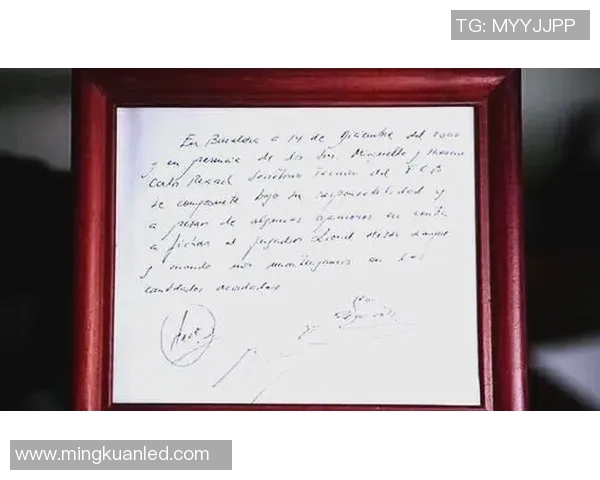 TG: MYYJJPP
En Barcelona a 14 de Diciembre del 2000
y en presencia de los Srs. Minguella y Horacio
Carlos Rexach Secretario Técnico del F.C.B
se compromete bajo su responsabilidad y
a pesar de algunas opiniones en contra
a fichar al jugador Lionel Messi
y cuando nos mantengamos en las
cantidades acordadas
www.mingkuanled.com